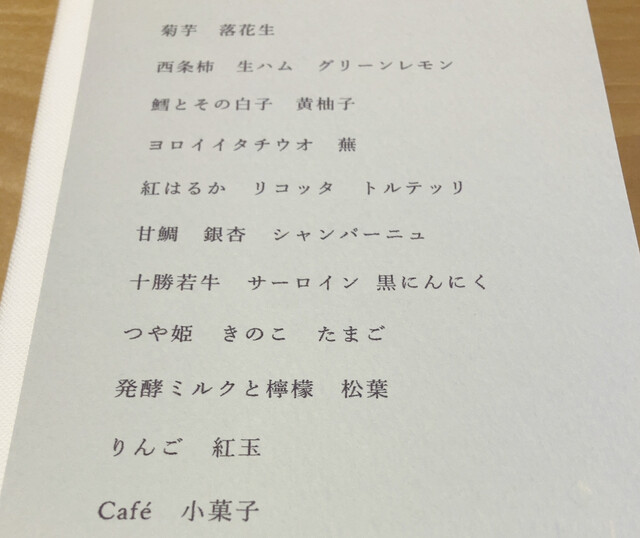 菊芋 落花生
西条柿 生ハム グリーンレモン
鱈とその白子 黄柚子
ヨロイイタチウオ 蕪
紅はるか リコッタ トルテッリ
甘鯛 銀杏 シャンパーニュ
十勝若牛 サーロイン 黒にんにく
つや姫 きのこ たまご
発酵ミルクと檸檬 松葉
りんご 紅玉
Café 小菓子